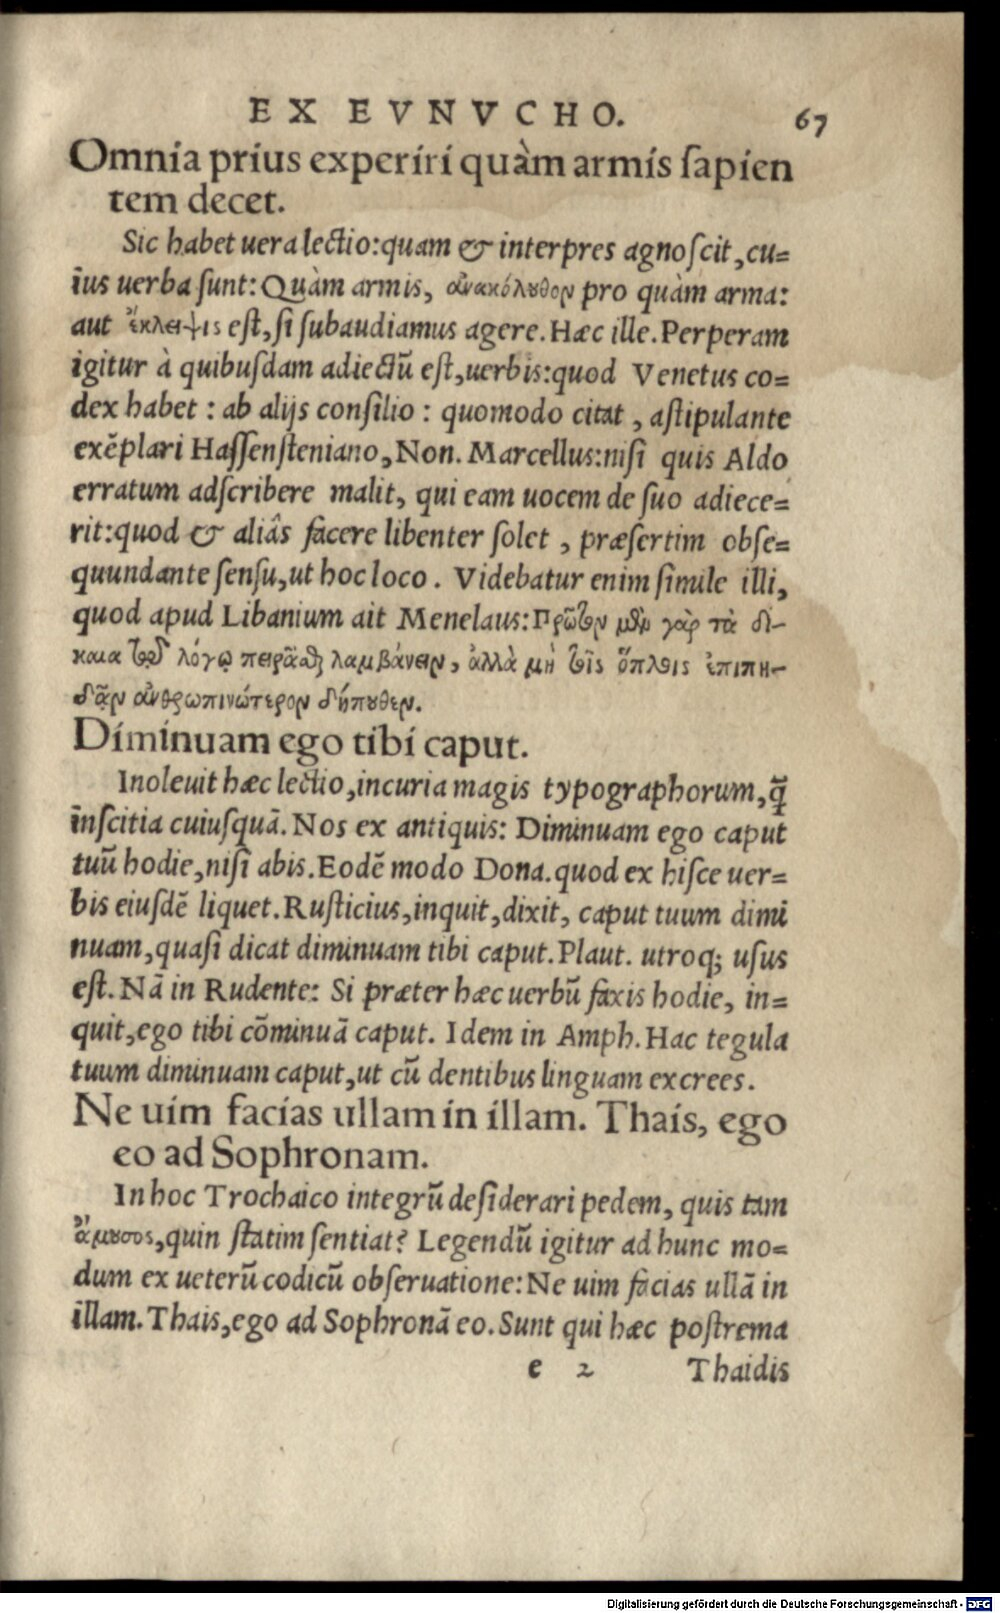 EX EVNVCHO. 67
Omnia prius experiri quàm armis sapien
tem decet.
Sic habet uera lectio:quam & interpres agnoscit,cu=
ius uerba sunt: Quàm armis, ἀνακόλουθον pro quàm arma:
aut ἔκλειψις est,si subaudiamus agere. Hæc ille. Perperam
igitur à quibusdam adiectū est,uerbis:quod Venetus co=
dex habet : ab alijs consilio : quomodo citat , astipulante
exēplari Hassensteniano, Non. Marcellus:nisi quis Aldo
erratum adscribere malit, qui eam uocem de suo adiece=
rit:quod & aliâs facere libenter solet , præsertim obse=
quundante sensu,ut hoc loco . Videbatur enim simile illi,
quod apud Libanium ait Menelaus:Πρῶτον μὲν γὰρ τὰ δί-
καια τοῦ λόγῳ πειρᾶσθαι λαμβάνειν, ἀλλὰ μὴ τοῖς ὅπλοις ἐπιπη-
δᾷν ἀνθρωπινώτερον δήπουθεν.
Diminuam ego tibi caput.
Inoleuit hæc lectio,incuria magis typographorum,q̃
inscitia cuiusquā. Nos ex antiquis: Diminuam ego caput
tuū hodie,nisi abis.Eodē modo Dona.quod ex hisce uer=
bis eiusdē liquet. Rusticius,inquit,dixit, caput tuum dimi
nuam,quasi dicat diminuam tibi caput. Plaut. utroq; usus
est. Nā in Rudente: Si præter hæc uerbū faxis hodie, in=
quit,ego tibi cōminuā caput. Idem in Amph. Hac tegula
tuum diminuam caput,ut cū dentibus linguam excrees.
Ne uim facias ullam in illam. Thais, ego
eo ad Sophronam.
In hoc Trochaico integrū desiderari pedem, quis tam
ἄμουσος,quin statim sentiat? Legendū igitur ad hunc mo=
dum ex ueterū codicū obseruatione: Ne uim facias ullā in
illam. Thais,ego ad Sophronā eo. Sunt qui hæc postrema
e 2 Thaidis
Digitalisierung gefördert durch die Deutsche Forschungsgemeinschaft - DFG